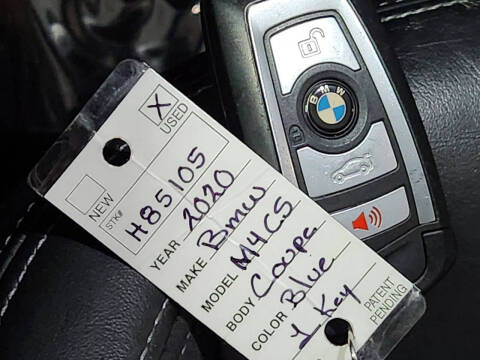 X USED
NEW
STK# H85105
YEAR 2020
MAKE Bmw
MODEL M4CS
BODY Coupe
COLOR Blue
1 Key
PATENT
PENDING
BMW